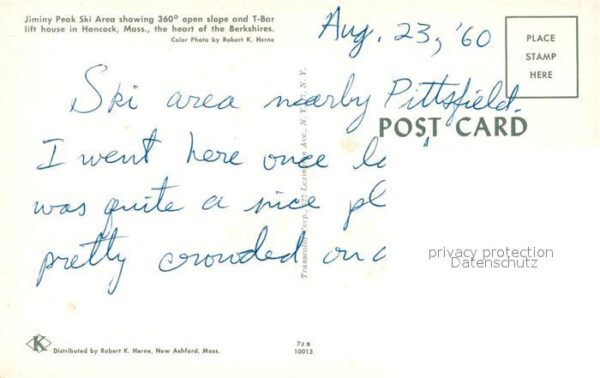 Jiminy Peak Ski Area showing 360° open slope and T-Bar
lift house in Hancock, Mass., the heart of the Berkshires.
Color Photo by Robert K. Herne
Aug. 23, '60
PLACE
STAMP
HERE
Ski area nearby Pittsfield.
POST CARD
I went here once
was quite a nice
pretty crowded
privacy protection
Datenschutz
Transcolor Corp., Lexington Ave., N.Y. N.Y.
K
Distributed by Robert K. Herne, New Ashford, Mass.
73 B
10013